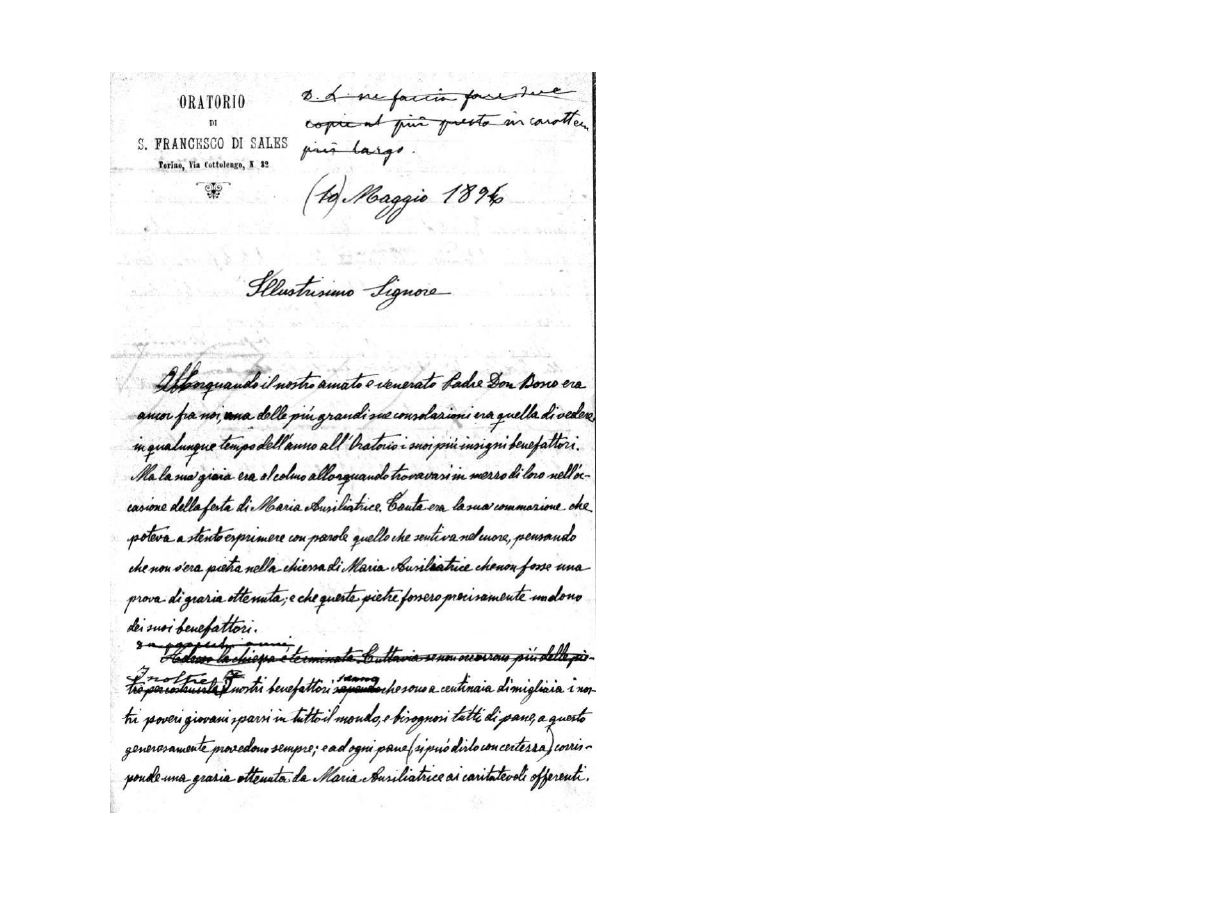 ORATORIO
DI
S. FRANCESCO DI SALES
Torino, Via Cottolengo, N. 32
D. L. ne faccia fare due
copie al più presto in caratter
più largo.
(10) Maggio 189
Illustrissimo Signore
Allorquando il nostro amato e venerato Padre Don Bosco era
ancor fra noi, una delle più grandi sue consolazioni era quella di vedere
in qualunque tempo dell'anno all'Oratorio i suoi più insigni benefattori.
Ma la sua gioia era al colmo allorquando trovavasi in mezzo di loro nell'oc-
casione della festa di Maria Ausiliatrice. Tanta era la sua commozione che
poteva a stento esprimere con parole quello che sentiva nel cuore, pensando
che non v'era pietra nella chiesa di Maria Ausiliatrice che non fosse una
prova di grazia ottenuta; e che queste pietre fossero precisamente un dono
dei suoi benefattori.
da parecchi anni
Adesso la chiesa è terminata. Tuttavia se non occorrono più delle pie-
Inoltre I sanno
tre per costruirla, I nostri benefattori sapendo che sono a centinaia di migliaia i nos-
tri poveri giovani sparsi in tutto il mondo, e bisognosi tutti di pane, a questo
generosamente provedono sempre; e ad ogni pane (si può dirlo con certezza) corris-
ponde una grazia ottenuta da Maria Ausiliatrice ai caritatevoli offerenti.